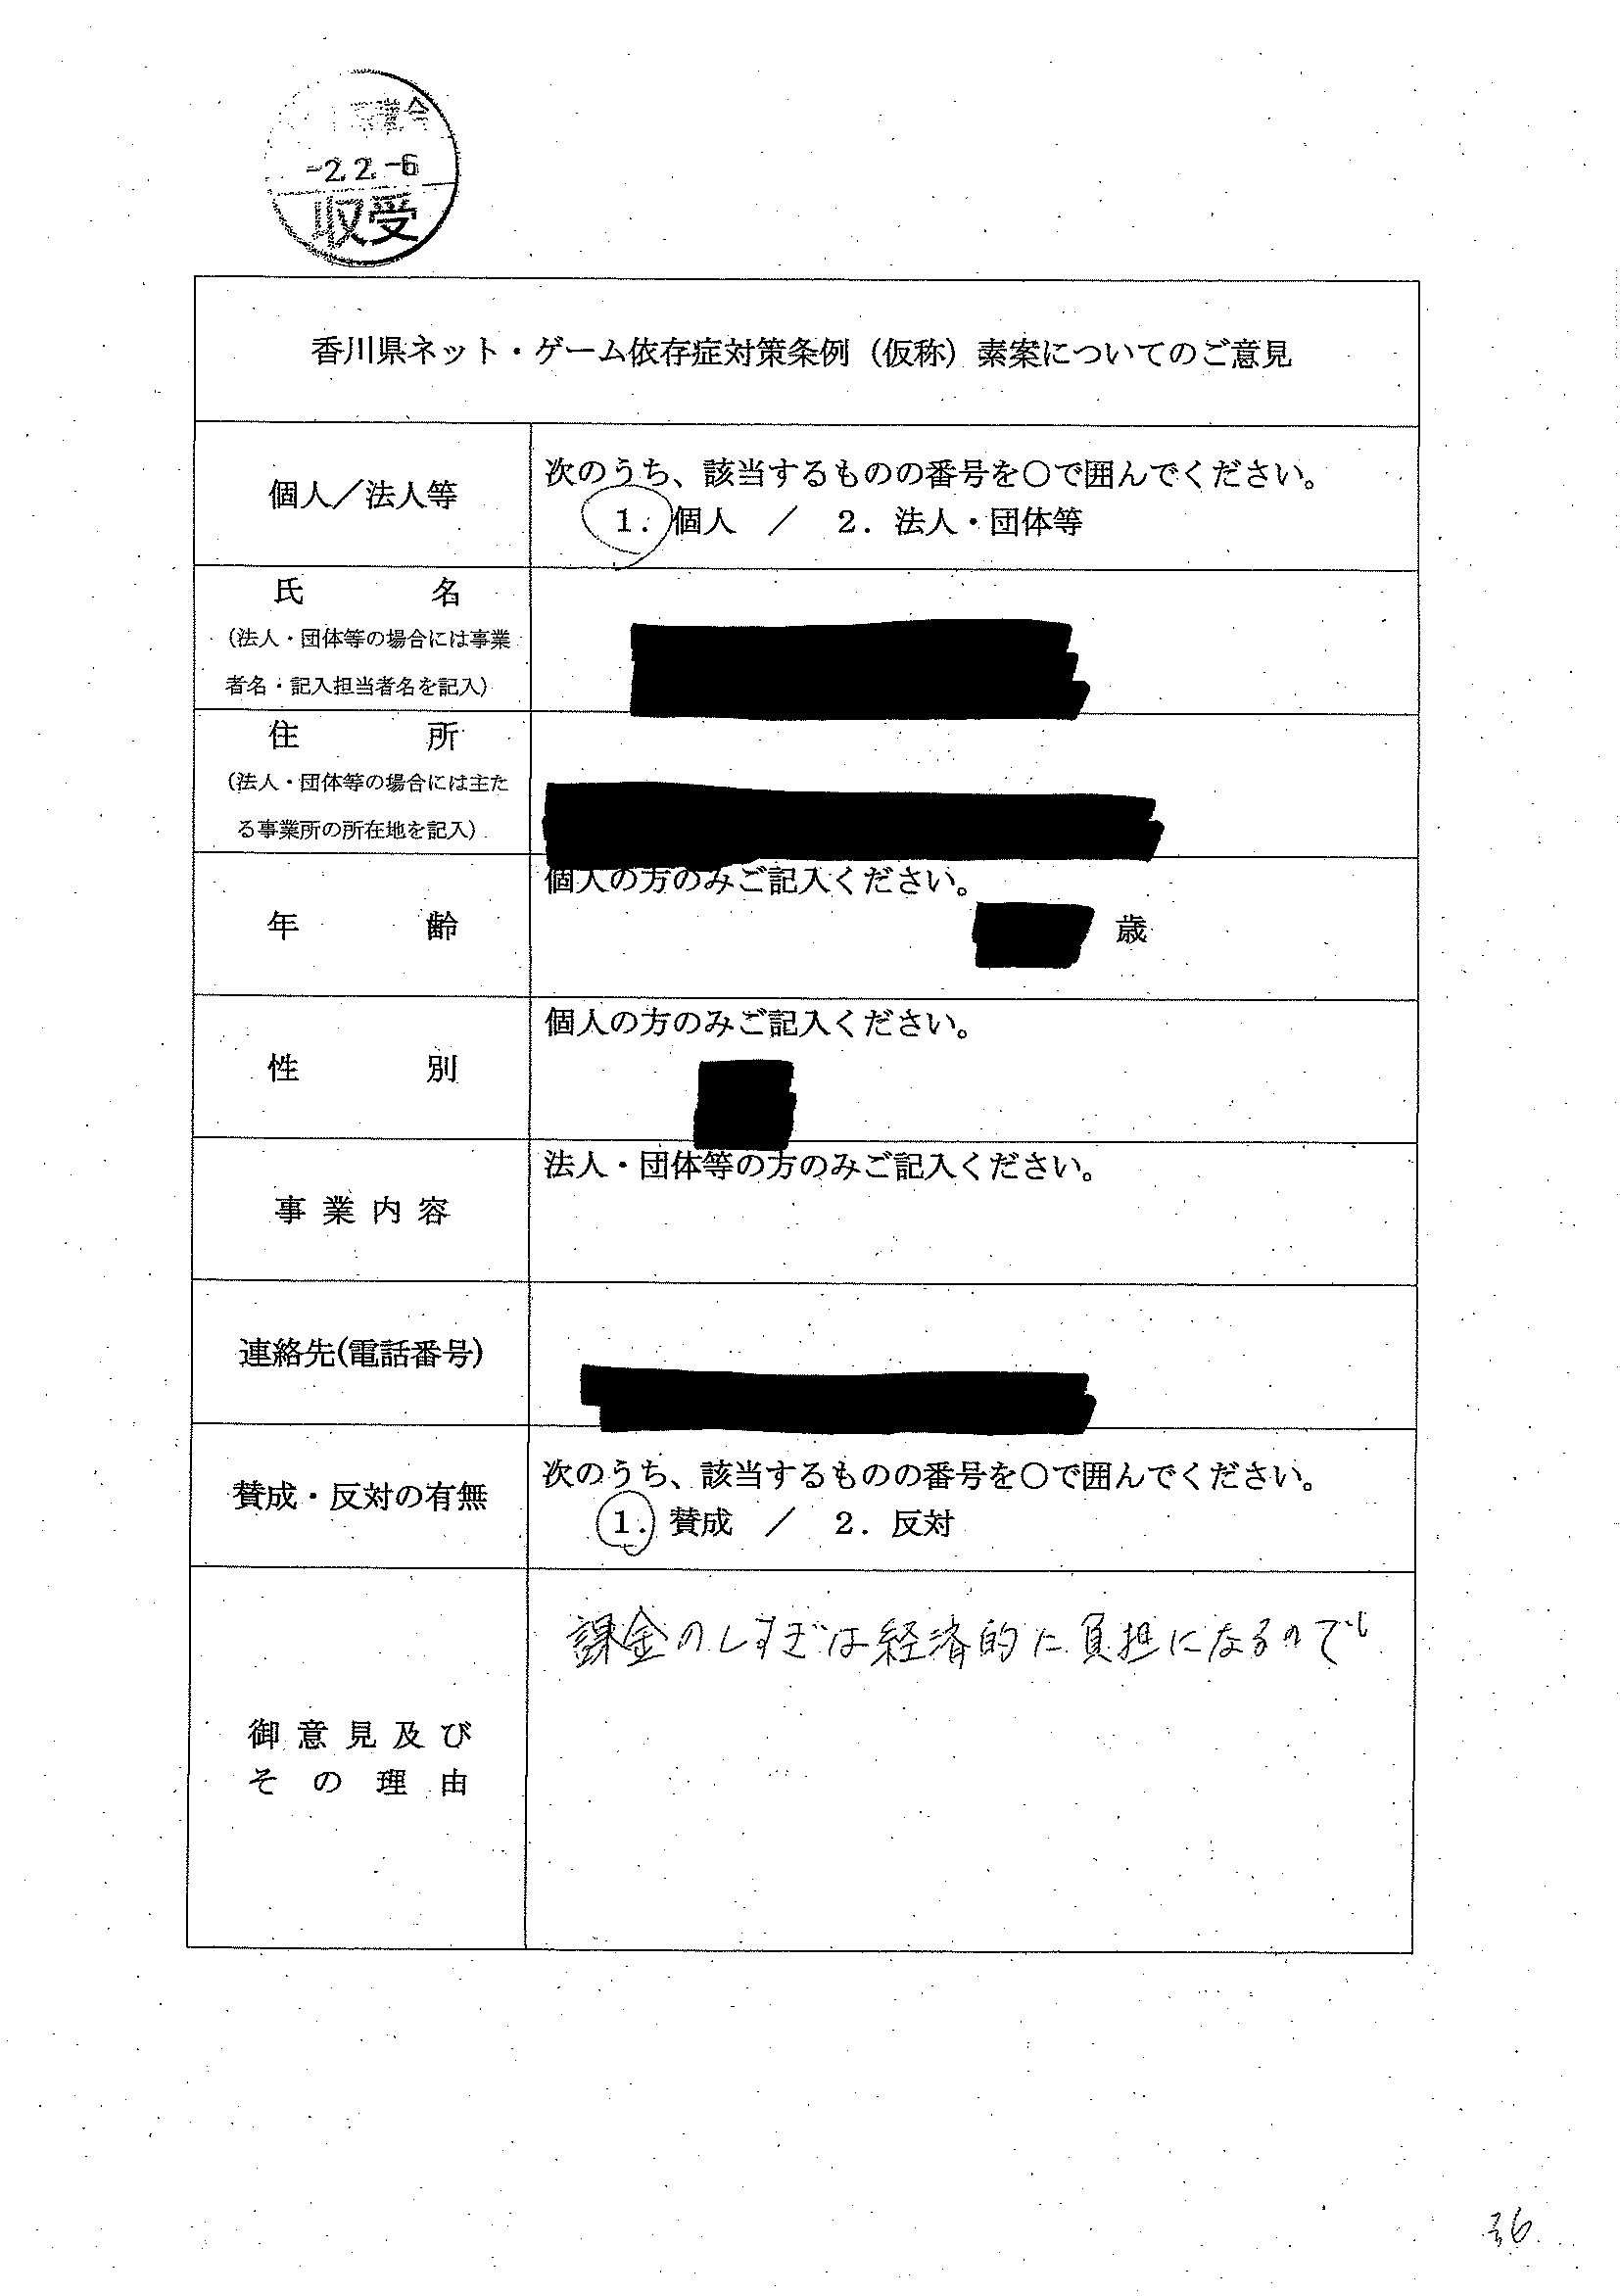 議会
-2.2.-6
収受
香川県ネット・ゲーム依存症対策条例（仮称）素案についてのご意見
個人／法人等
次のうち、該当するものの番号を○で囲んでください。
1. 個人 ／ 2. 法人・団体等
氏名
（法人・団体等の場合には事業
者名・記入担当者名を記入）
住所
（法人・団体等の場合には主た
る事業所の所在地を記入）
年齢
個人の方のみご記入ください。
歳
性別
個人の方のみご記入ください。
事業内容
法人・団体等の方のみご記入ください。
連絡先(電話番号)
賛成・反対の有無
次のうち、該当するものの番号を○で囲んでください。
1. 賛成 ／ 2. 反対
御意見及び
その理由
課金のしすぎは経済的に負担になるので
36